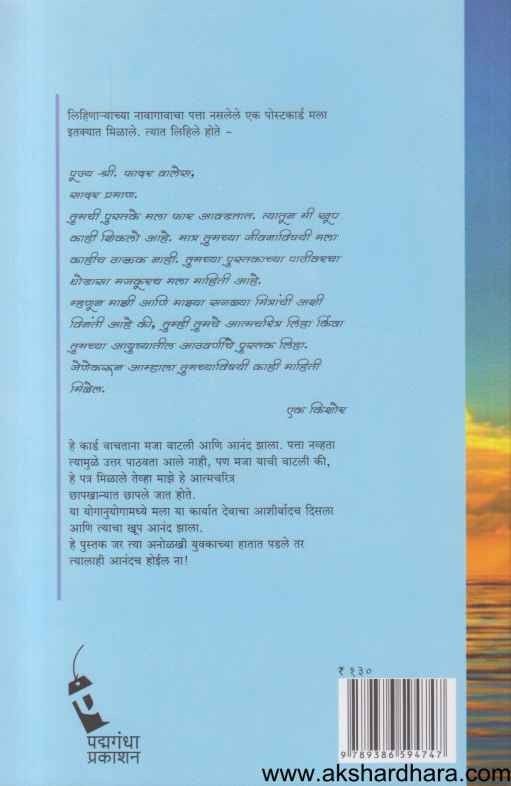 लिहिणाऱ्याच्या नावागावाचा पत्ता नसलेले एक पोस्टकार्ड मला
इतक्यात मिळाले. त्यात लिहिले होते –
पूज्य श्री. फादर वालेस,
सादर प्रमाण.
तुमची पुस्तके मला फार आवडतात. त्यातून मी खूप
काही शिकलो आहे. मात्र तुमच्या जीवनाविषयी मला
काहीच ठाऊक नाही. तुमच्या पुस्तकाच्या पाठीवरचा
थोडासा मजकूरच मला माहिती आहे.
म्हणून माझी आणि माझ्या सगळ्या मित्रांची अशी
विनंती आहे की, तुम्ही तुमचे आत्मचरित्र लिहा किंवा
तुमच्या आयुष्यातील आठवणींचे पुस्तक लिहा.
जेणेकरून आम्हाला तुमच्याविषयी काही माहिती
मिळेल.
एक किशोर
हे कार्ड वाचताना मजा वाटली आणि आनंद झाला. पत्ता नव्हता
त्यामुळे उत्तर पाठवता आले नाही, पण मजा याची वाटली की,
हे पत्र मिळाले तेव्हा माझे हे आत्मचरित्र
छापखान्यात छापले जात होते.
या योगानुयोगामध्ये मला या कार्यात देवाचा आशीर्वादच दिसला
आणि त्याचा खूप आनंद झाला.
हे पुस्तक जर त्या अनोळखी युवकाच्या हातात पडले तर
त्यालाही आनंदच होईल ना!
₹ १३०
पद्मगंधा
प्रकाशन
9 789386 594747
www.akshardhara.com